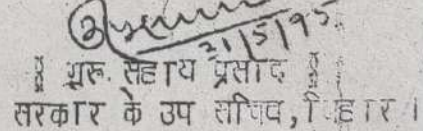 21/5/95
॥ गुरू. सहाय प्रसाद ॥
सरकार के उप सचिव, बिहार ।